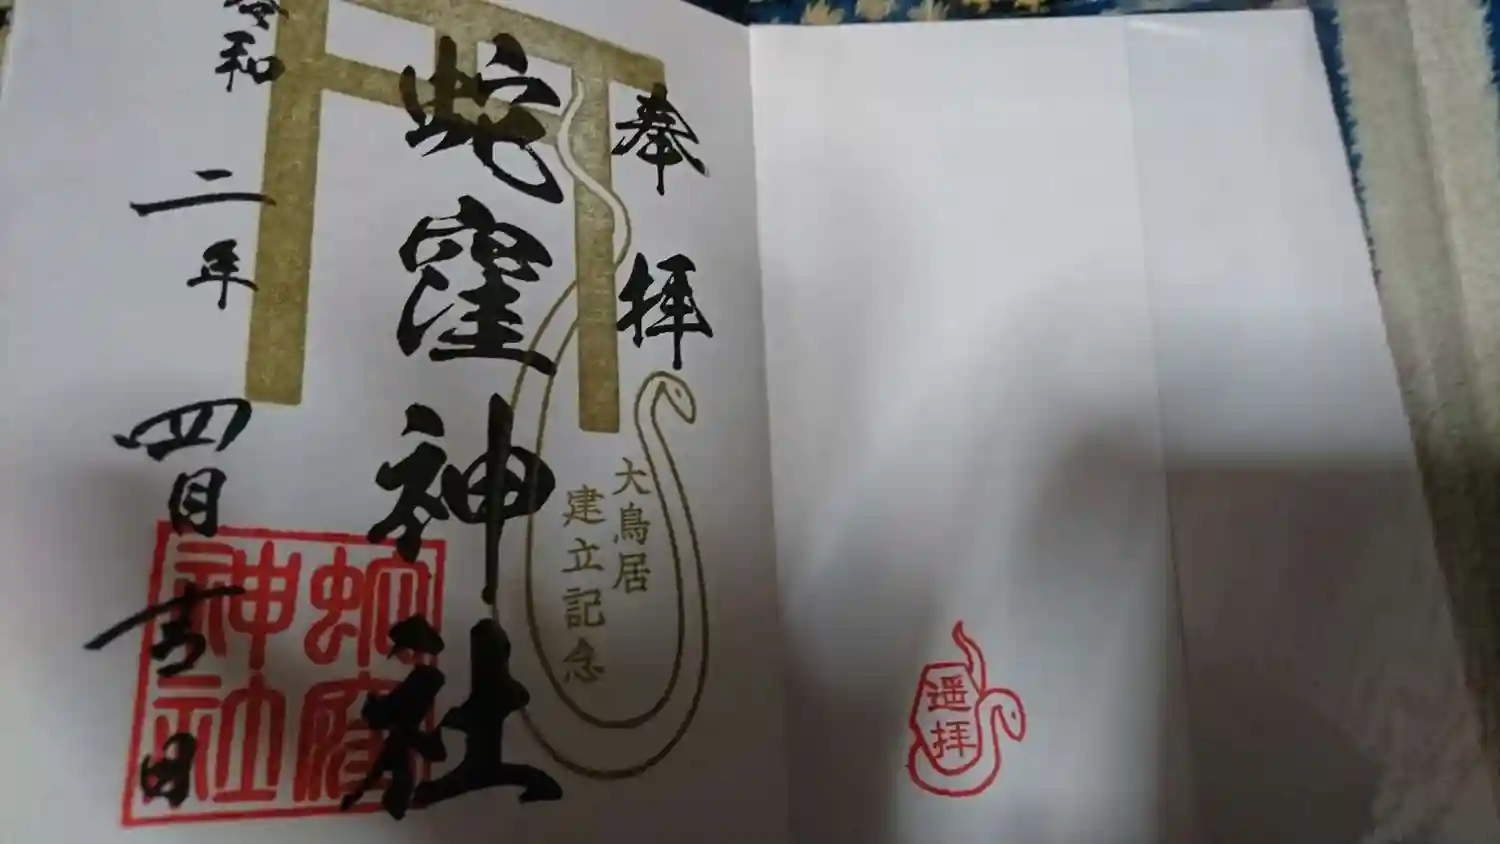 奉拝
蛇窪神社
令和二年四月吉日
大鳥居
建立記念
蛇窪
神社
遥拝